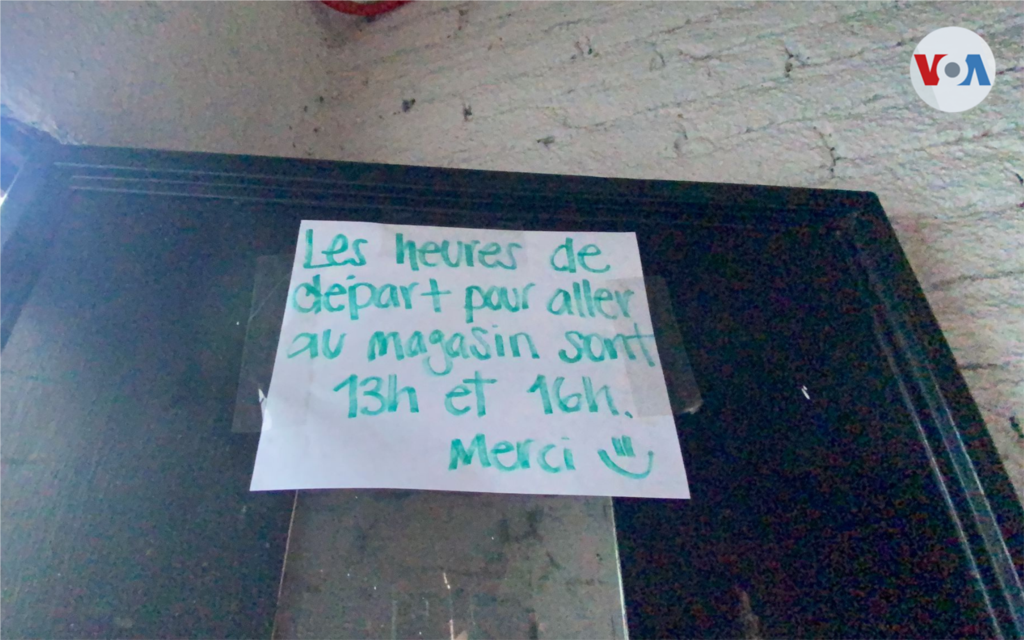 VOA
Les heures de
départ pour aller
au magasin sont
13h et 16h.
Merci